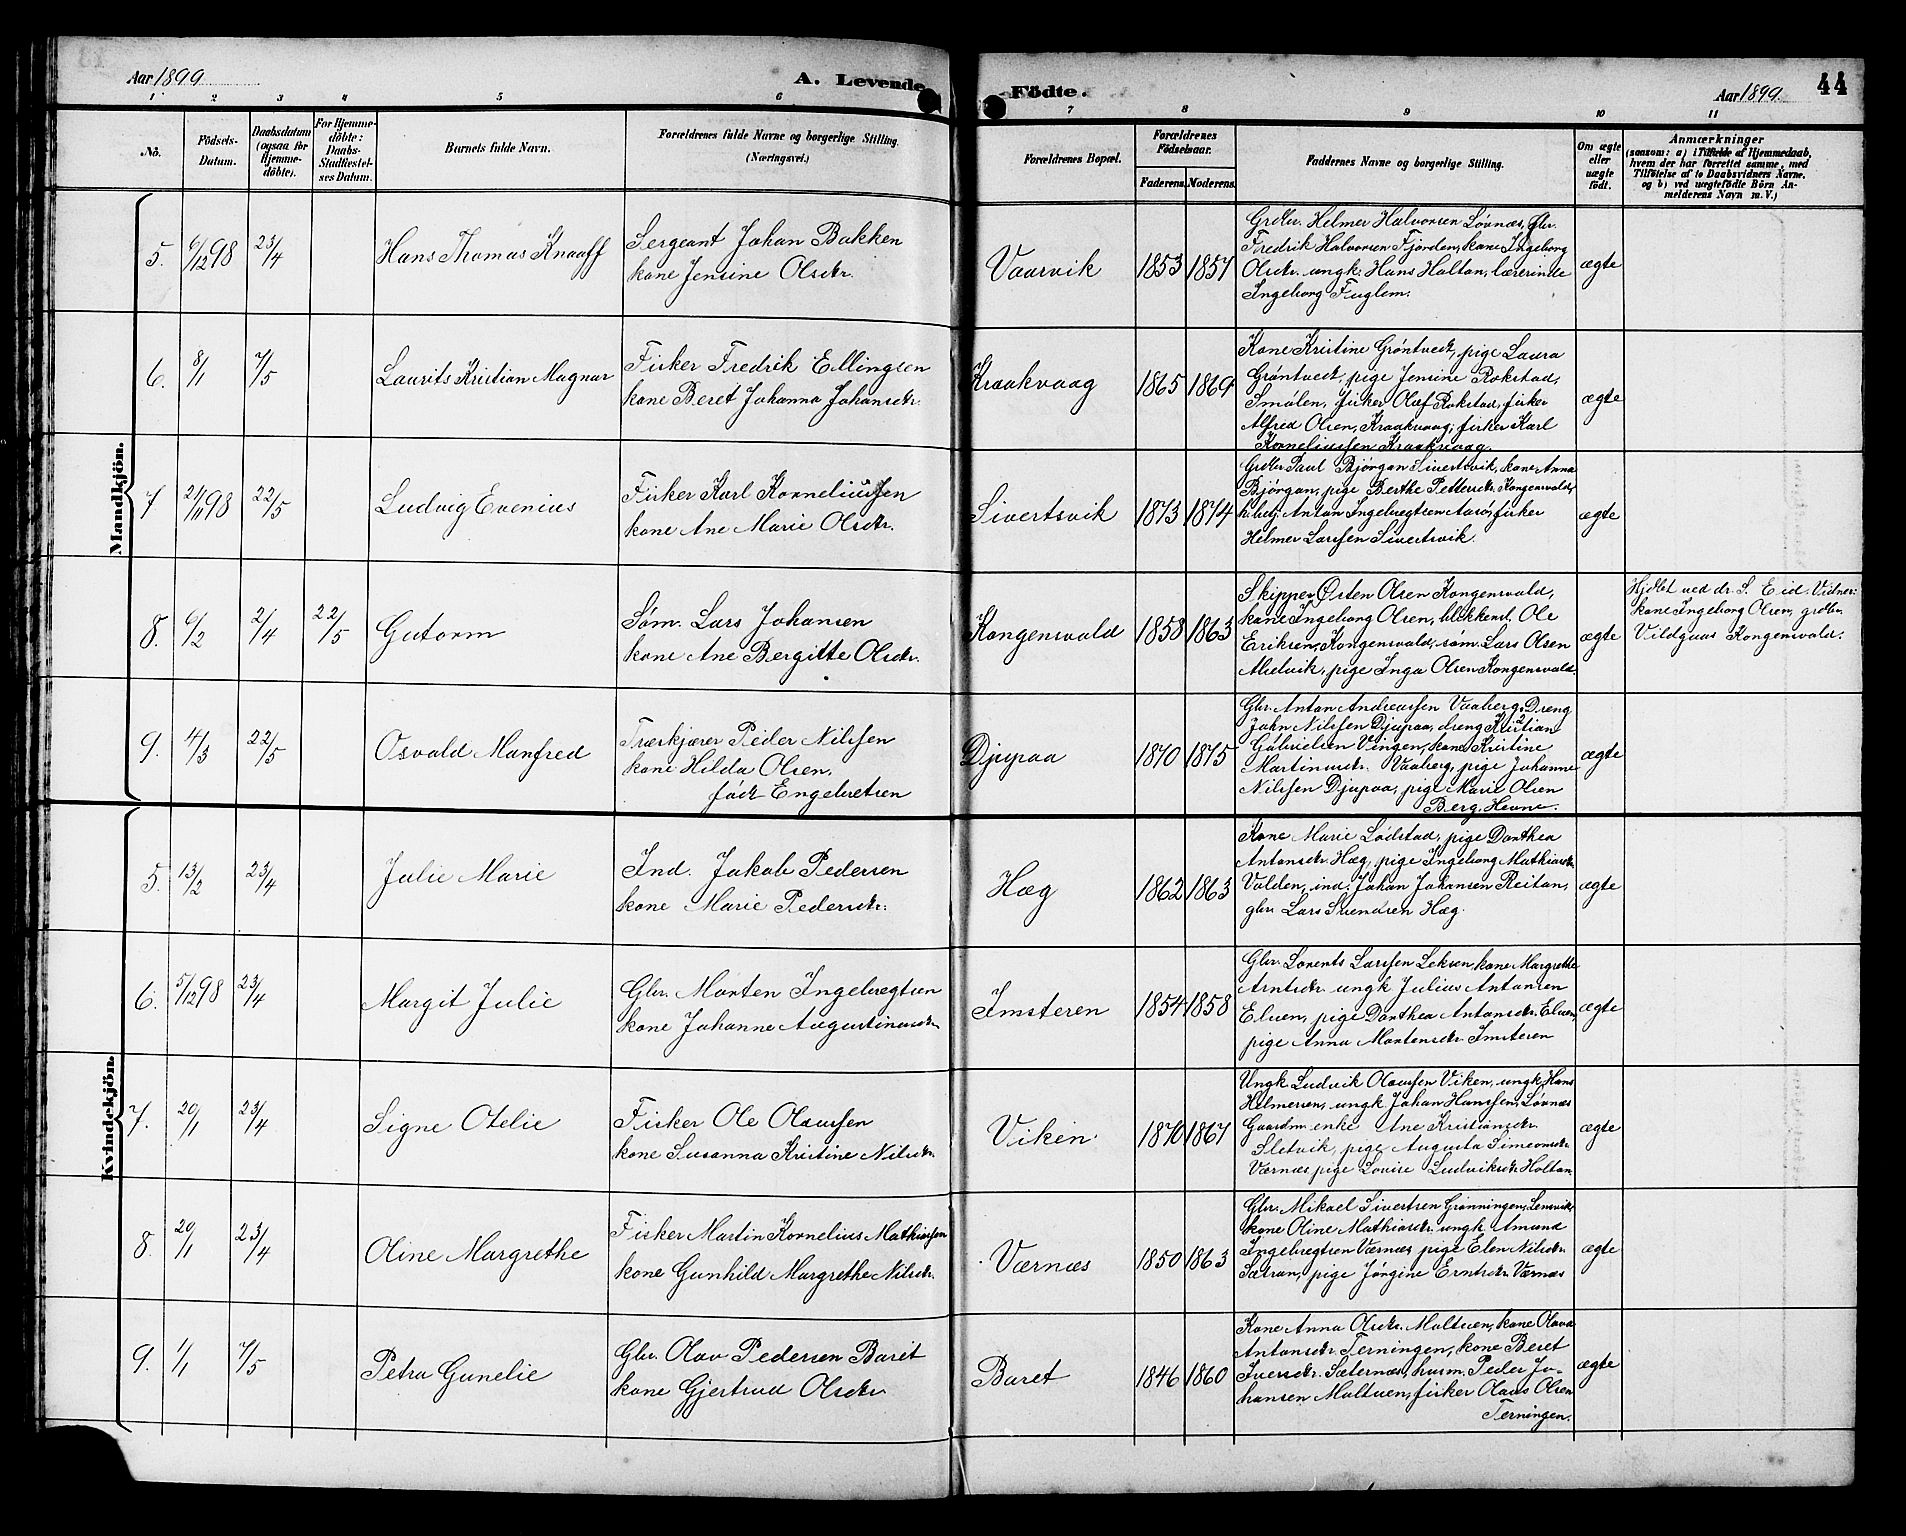 Aar 1899
A. Levende
Födte.
Aar 1899.
44
1 2 3 4 5 6 7 8 9 10 11
No.
Födsels-
Datum.
Daabsdatum
(ogsaa for
Hjemme-
döbte).
For Hjemme-
döbte:
Daabs-
Stadfæstel-
ses Datum.
Barnets fulde Navn.
Forældrenes fulde Navne og borgerlige Stilling.
(Næringsvei.)
Forældrenes Bopæl.
Forældrenes
Födselsaar.
Faderens. Moderens.
Faddernes Navne og borgerlige Stilling.
Om ægte
eller
uægte
födt.
Anmærkninger
(saasom: a) i Tilfælde af Hjemmedaab,
hvem der har forrettet samme, med
Tilföielse af to Daabsvidners Navne.
og b) ved uægtefödte Börn An-
melderens Navn m. V.)
Mandkjön.
5. 6/12 98 23/4 Hans Thomas Knaoff
Sergeant Johan Bakken
kone Jensine Olsdtr.
Vaarvik 1853 1857
Grdbr. Helmer Halvorsen Løvnæs, Gbr.
Fredrik Halvorsen Fjorden, kone Ingeborg
Olsdtr. ungk. Hans Holtan, lærerinde
Ingeborg Fuglem.
ægte
6. 8/1 7/5 Laurits Kristian Magnar
Fisker Fredrik Ellingsen
kone Beret Johanna Johansdtr.
Kraakvaag 1865 1869
Kone Kristine Grøntvedt, pige Laura
Grøntvedt, pige Jensine Rokstad,
Smølen, fisker Olaf Rokstad, fisker
Alfred Olsen, Kraakvaag, fisker Karl
Korneliussen Kraakvaag.
ægte
7. 21/11 98 22/5 Ludvig Evenius
Fisker Karl Korneliussen
kone Ane Marie Olsdtr.
Sivertsvik 1873 1874
Grdbr Paul Bjørgan Sivertsvik, kone Anna
Bjørgan, pige Berthe Pettersdtr. Kongensvold,
Anton Ingebregtsen fisker
Helmer Larssen Sivertsvik.
ægte
8. 6/2 2/4 22/5 Gutorm
Søm. Lars Johansen
kone Ane Bergitte Olsdtr.
Kongensvold 1858 1863
Skipper Østen Olsen Kongensvold,
kone Ingeborg Olsen, blikkensl. Ole
Eriksen, Kongensvold, søm. Lars Olsen
Mielvik, pige Inga Olsen Kongensvold.
ægte
Hjdbt ved dr. S. Eid. Vidner:
kone Ingeborg Olsen, grdbr.
Vildgaas Kongensvold.
9. 4/3 22/5 Osvald Manfred
Træskjærer Peder Nilssen
kone Hilda Olsen,
født Engebretsen
Djupaa 1870 1875
Gbr. Anton Andreassen Vaaberg, Dreng
John Nilssen Djupaa, dreng Kristian
Gabrielsen Vingen, kone Kristine
Martinusdtr. Vaaberg, pige Johanne
Nilssen Djupaa, pige Marie Olsen
Berg, Hevne.
ægte
Kvindekjön.
5. 13/2 23/4 Julie Marie
Ind. Jakob Pedersen
kone Marie Pedersdtr.
Hæg 1862 1863
Kone Marie Lødstad, pige Dorthea
Antonsdtr. Hæg, pige Ingeborg Mathiasdtr.
Valden, ind. Johan Johansen Reitan,
gbr Lars Svendsen Hæg.
ægte
6. 5/12 98 23/4 Margit Julie
Gbr. Morten Ingebregtsen
kone Johanne Augustinusdtr.
Imsteren 1854 1858
Gbr. Lorents Larssen Leksen, kone Margrethe
Arntsdtr. ungk Julius Antonsen
Elven, pige Dorthea Antonsdtr. Elven,
pige Anna Mortensdtr. Imsteren
ægte
7. 20/1 23/4 Signe Otelie
Fisker Ole Olaussen
kone Susanna Kristine Nilsdtr.
Viken. 1870 1867
Ungk Ludvik Olaussen Viken, ungk Hans
Helmersen, ungk Johan Hanssen, Løvnæs
Gaardm enke Ane Kristiansdtr.
Sletvik, pige Augusta Simeonsdtr.
Værnæs pige Lovise Ludviksdtr. Holtan
ægte
8. 20/1 23/4 Oline Margrethe
Fisker Martin Kornelius Mathiassen
kone Gunhild Margrethe Nilsdtr.
Værnæs 1850 1863
Gbr. Mikael Sivertsen Grønningen, Lensvik,
kone Oline Mathiasdtr. ungk Amund
Ingebregtsen Værnæs, pige Elen Nilsdtr.
Sætran, pige Jørgine Erntsdtr. Værnæs
ægte
9. 1/1 7/5 Petra Gunelie
Gbr. Olav Pedersen Baret
kone Gjertrud Olsdtr.
Baret 1846 1860
Kone Anna Olsdtr. Moltuen, kone Olava
Antonsdtr. Terningen, kone Beret
Iversdtr. Sæternæs, husm. Peder Jo-
hansen Moltuen, fisker Olaus Olsen
Terningen.
ægte